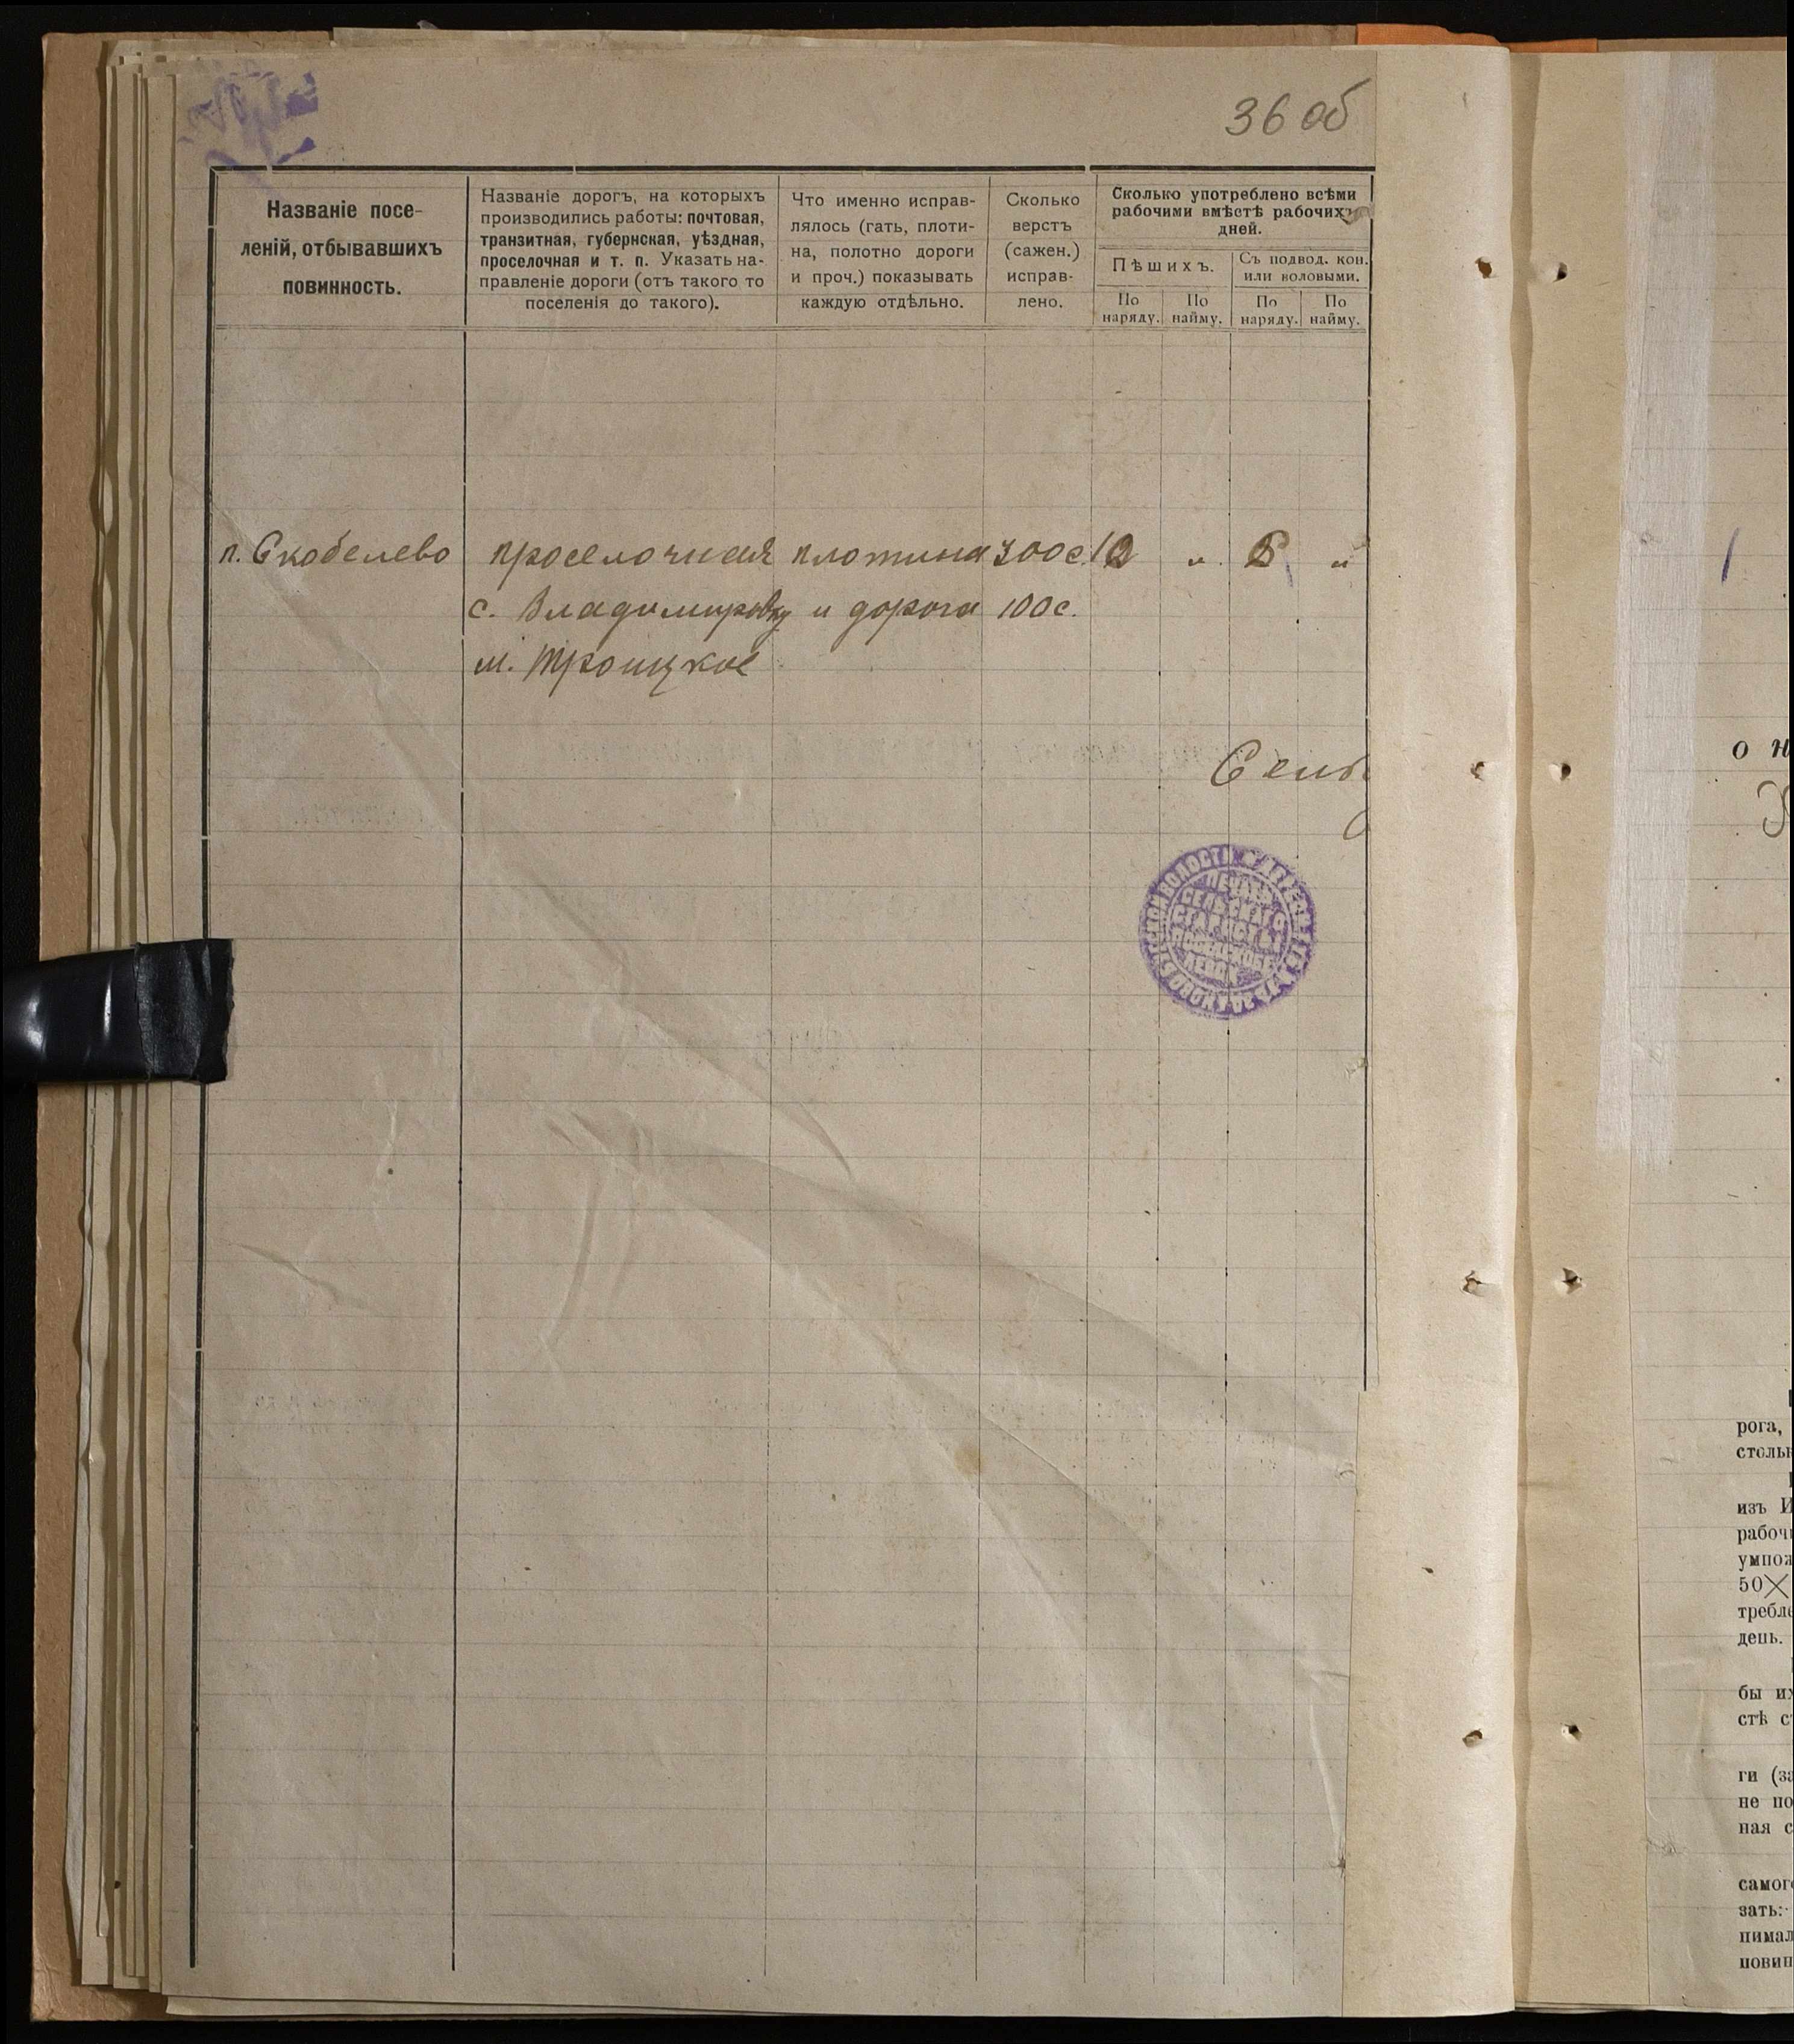 36 об
Названіе посе-
леній, отбывавшихъ
повинность.
Названіе дорогъ, на которыхъ
производились работы: почтовая,
транзитная, губернская, уѣздная,
проселочная и т. п. Указать на-
правленіе дороги (отъ такого то
поселенія до такого).
Что именно исправ-
лялось (гать, плоти-
на, полотно дороги
и проч.) показывать
каждую отдѣльно.
Сколько
верстъ
(сажен.)
исправ-
лено.
Сколько употреблено всѣми
рабочими вмѣстѣ рабочихъ
дней.
Пѣшихъ.
Съ подвод. кон.
или воловыми.
По
наряду.
По
найму.
По
наряду.
По
найму.
п. Скобелево проселочная плотина 300 с. 12 „ „
с. Владимировку и дорога 100 с.
м. Троицкое
Сель
ПЕЧАТЬ
СЕЛЬСКАГО
СТАРОСТЫ
о н
рога,
столь
изъ И
рабоч
умнож
50×
требле
день.
бы их
стѣ с
ги (за
не по
ная с
самог
зать:
нимал
повин